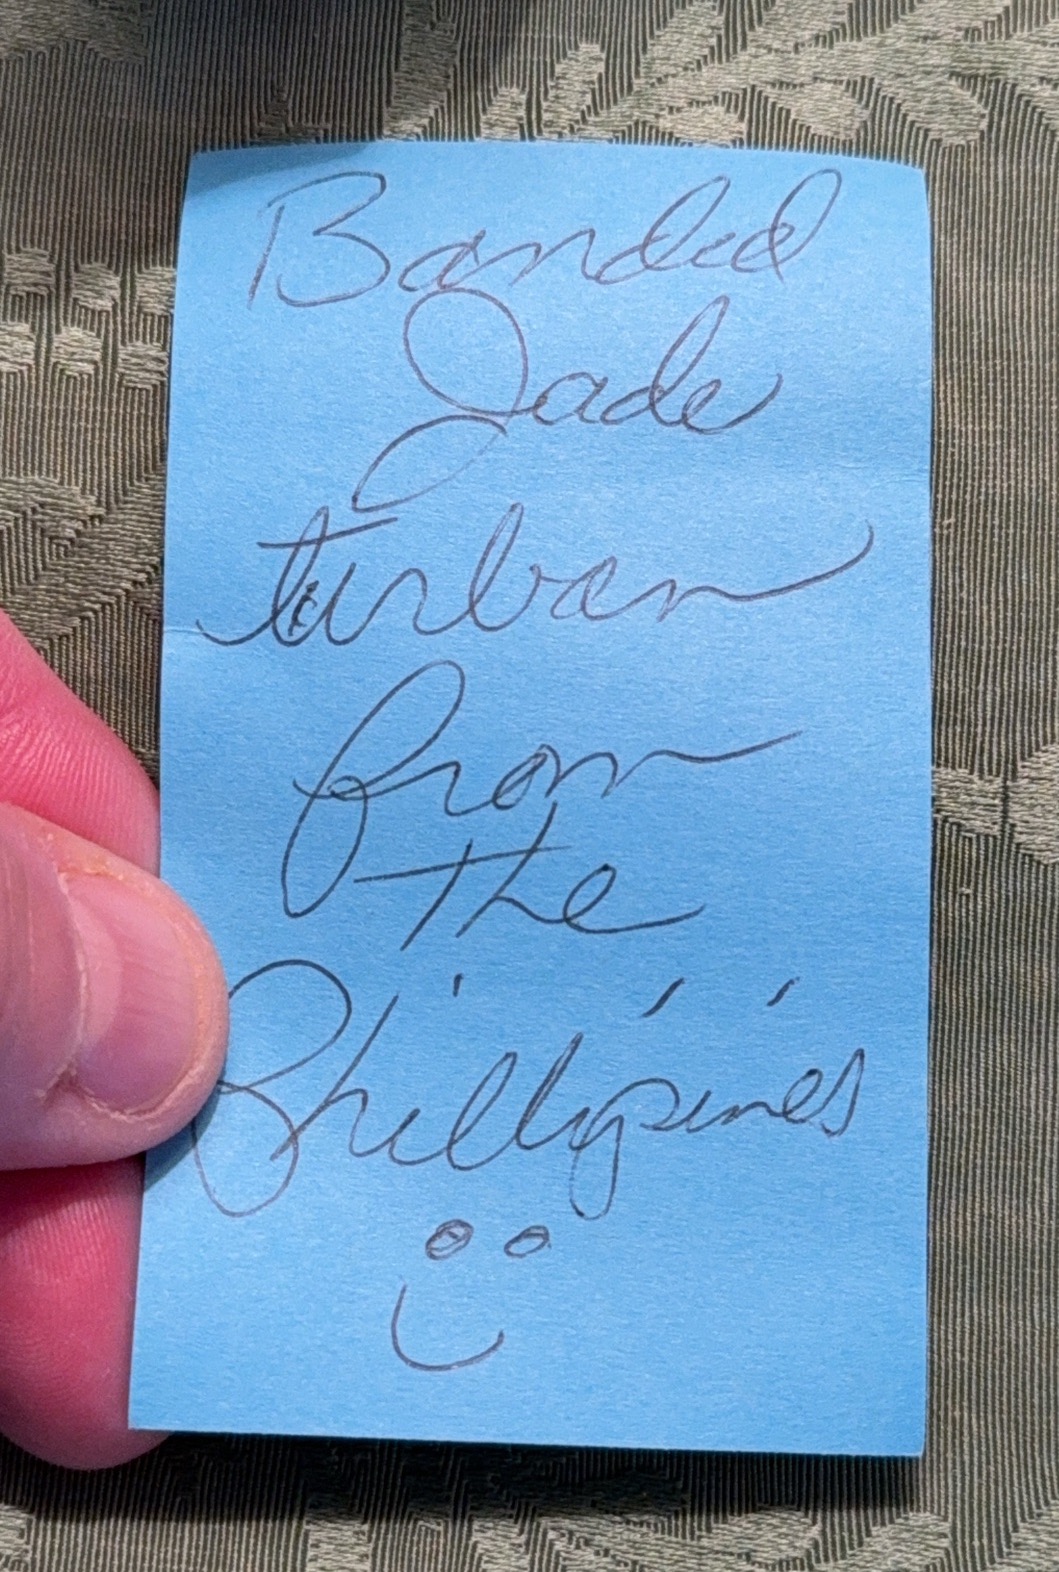 Banded
Jade
turban
from
The
Phillipines